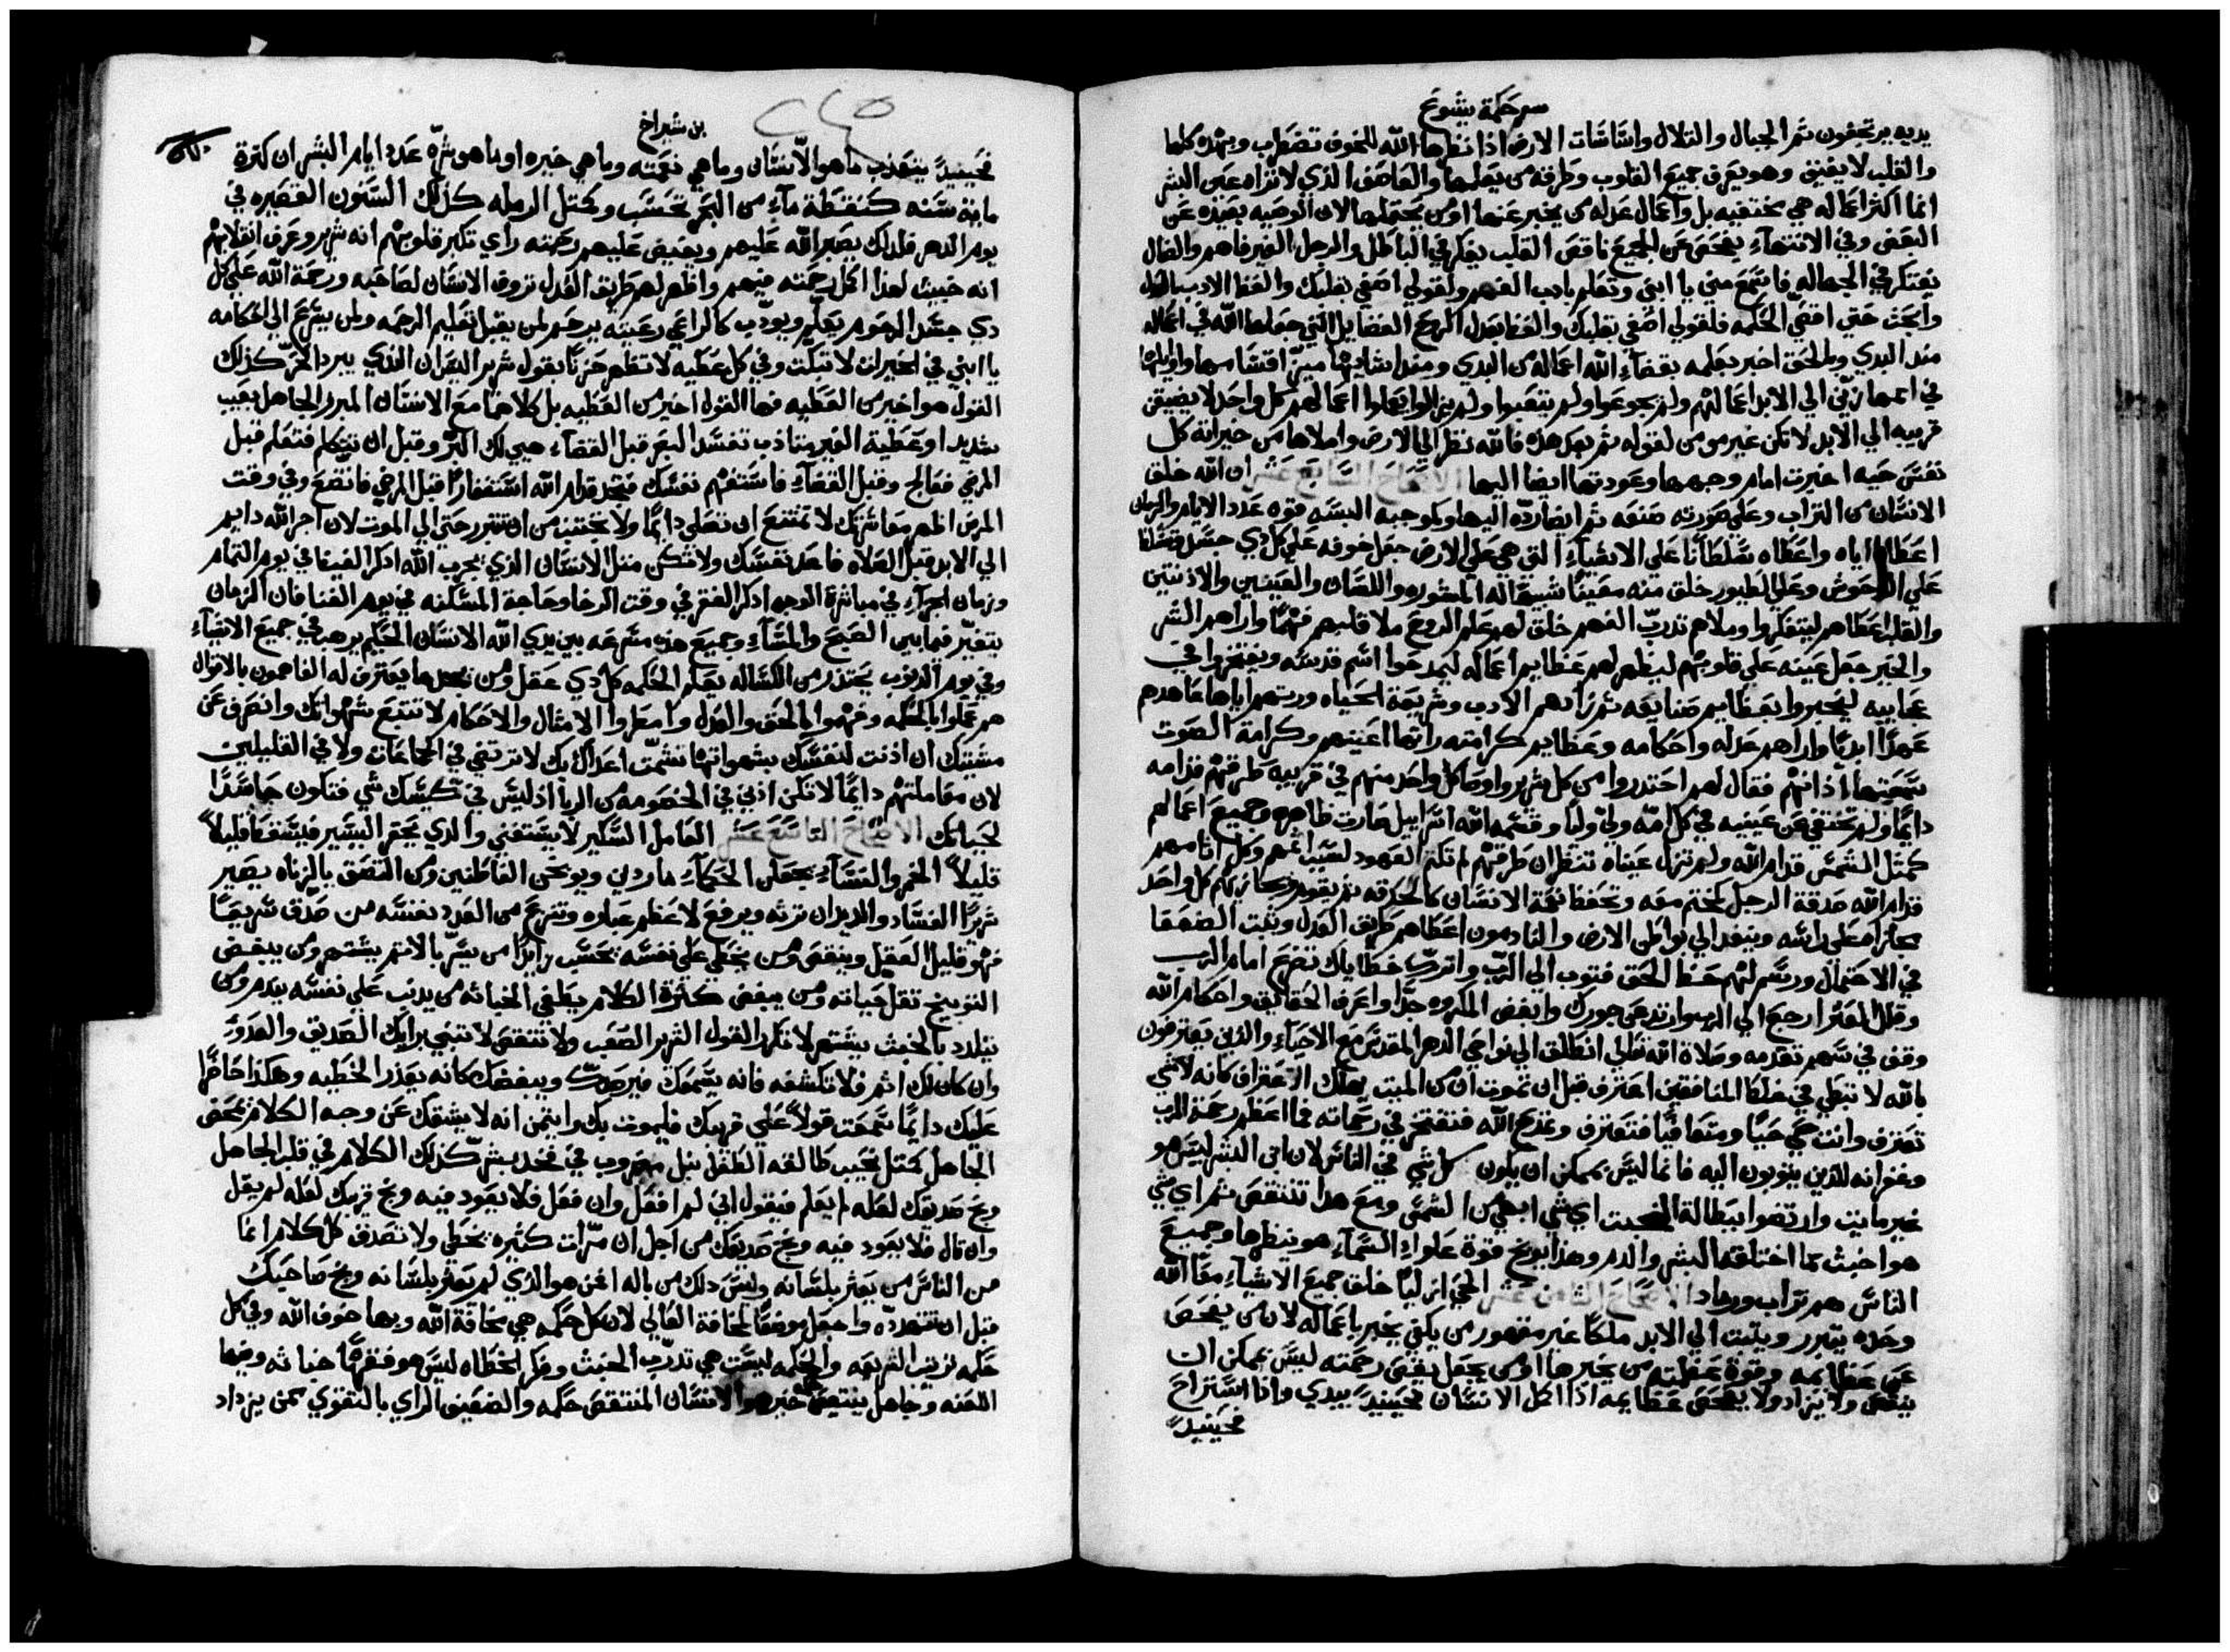 سفر حكمة يشوع
يديه يرتجفون ثم الجبال والتلال واساسات الارض اذا نظرها الله للخوف تضطرب وبهده كلها
والقلب لا يفيق وهو يعرف جميع القلوب وطرقه من يعلمها والعاصف الذي لا تراه عين البشر
انما اكثر اعماله هي مختفيه بل واعمال عدله من يخبر عنها او من يحتملها لان الوصيه بعيده عن
البعض وفي الانتهاء يفحص عن الجميع ناقص القلب يفكر في الباطل والرجل الغير فاهم والضال
يفتكر في الجهاله فاستمع مني يا ابني وتعلم بادب الفهم ولقولي اصغي بقلبك والفظ الادب بالعدل
وابحث حتى اقتني الحكمه فلقولي اصغي بقلبك والفظ بعدل الروح الفضايل التي جعلها الله في اعماله
منذ البدي وبالحق اخبر بعلمه بقضاء الله اعماله من البدي ومنذ انشايها ميز اقسامها واوايلها
في اممها زين الي الابد اعمالهم ولم يجوعوا ولم يتعبوا ولم يزالوا يعملوا اعمالهم كل واحد لا يضيق
قريبه الي الابد لا تكن غير مومن لقوله ثم بعد هذه فالله نظر الي الارض واملاها من خيراته كل
نفس حيه اخبرت امام وجهها وعودتها ايضا اليها الاصحاح السابع عشر ان الله خلق
الانسان من التراب وعلي صورته صنعه ثم ايضا رده اليها وبلوجبه البسه قوه عدد الايام والزمان
اعطاه اياه واعطاه سلطانا علي الاشياء التي هي علي الارض جعل خوفه علي كل دي جسد فتسلط
علي الوحوش وعلي الطيور خلق منه معينا شبيها له المشوره واللسان والعينين والادنين
والقلب اعطاهم ليتفكروا وملاهم تدرب الفهم خلق لهم علم الروح ملا قلبهم فهما واراهم الشر
والخير جعل عينه علي قلوبهم ليظهر لهم عظايم اعماله ليمدحوا اسم قدسه ويفتخروا في
عجايبه ليخبروا بعظايم صنايعه ثم زادهم الادب وشريعة الحياه وورثهم اياها عاهدهم
عهدا ابديا واراهم عدله واحكامه وعظايم كرامته راتها اعينهم وكرامة الصوت
سمعتها اذانهم فقال لهم احتدروا من كل شرير واوصا كل واحد منهم في قريبه طرقهم قدامه
دايما ولم تختفي عن عينيه في كل امه ولي واليا وقسمه الله اسراييل صارت ظاهره وجميع اعمالهم
كمثل الشمس قدام الله ولم تزل عيناه تنظران طرقهم لم تكتم العهود لسبب اثمهم وكل اثامهم
قدام الله صدقة الرجل كختم معه وتحفظ نعمة الانسان كالحدقه ثم يقوم ويجازيهم كل واحد
مجازاه علي راسه وينفد الي بواطن الارض والنادمون اعطاهم طريق العدل وثبت الضعفا
في الاحتمال ورسم لهم حظ الحق فتوب الي الرب واترك خطاياك تضرع امام الرب
وقلل العثر ارجع الي الرب وارتدع عن جورك وابغض المكروه جدا واعرف الحقايق واحكام الله
وقف في سهم تقدمه وصلاة الله تعالي انطلق الي نواحي الدهر المقدس مع الاحياء والذين يعترفون
بالله لا تبطي في ضلالة المنافقين اعترف قبل ان تموت ان من الميت يهلك الاعتراف كانه لا شي
تعترف وانت حي حيا ومتعافيا فتعترف وتمدح الله فتفتخر في رحماته فما اعظم رحمة الرب
وغفرانه للذين يتوبون اليه فانما ليس يمكن ان يكون كل شي في الناس لان ابن البشر ليس هو
غير مايت وارتضوا ببطالة الخبث اي شي ابهي من الشمس ومع هدا تنتقص ثم اي شي
هو اخبث مما اختلقه البشر والدم وهذا يوبخ قوة علو السماء هو ينظرها وجميع
الناس هم تراب ورماد الاصحاح الثامن عشر الحي ازليا خلق جميع الاشياء معا الله
وحده يتبرر ويثبت الي الابد ملكا غير مقهور من يكفي يخبر باعماله لان من يفحص
عن عظايمه وقوة عظمته من يخبرها او من يجعل يقص رحمته ليس يمكن ان
ينقص ولا يزاد ولا يفحص عظايمه اذا اكمل الانسان فحينيد يبدي واذا استراح
فحينيد
بن شيراخ
فحينيدً يتعذب ما هو الانسان وما هي نعمته وما هي خيره او ما هو شره عدد ايام البشر ان كثرة
ماية سنه كنقطة ماء من البحر تحسب وكمثل الرمله كذلك السنون القصيره في
يوم الدهر فلذلك يصبر الله عليهم ويفيض عليهم رحمته راي تكبر قلوبهم انه شرير وعرف انقلابهم
انه خبيث لهذا اكمل رحمته فيهم واظهر لهم طريق العدل تروف الانسان لصاحبه ورحمة الله علي كل
دي جسد المرحوم يعلم ويودب كالراعي رعيته يرحم لمن يقبل تعليم الرحمه ولمن يسرع الي احكامه
يا ابني في الخيرات لا تبكت وفي كل عطيه لا تظهر حزنا بقول شرير اليس ان الندي يبرد الحر كذلك
القول هو اخير من العطيه فها القول اخير من العطيه بل كلاهما مع الانسان المبرر الجاهل يعيب
شديدا وعطية الغير متادب تفسد البصر قبل القضاء هيي لك البر وقبل ان تتكلم فتعلم قبل
المرض فعالج وقبل القضاء فاستفهم نفسك فتجد قدام الله استغفارا قبل المرض فاتضع وفي وقت
المرض اظهر معاشرتك لا تمتنع ان تصلي دايما ولا تجتنب من ان تتبرر حتي الي الموت لان اجر الله دايم
الي الابد قبل الصلاه فاعد نفسك ولا تكن مثل الانسان الذي يجرب الله ادكر الغيظ في يوم التمام
وزمان الجزاء في مباشرة الوجه ادكر الفقر في وقت الرخا وحاجة المسكنه في يوم الغنا فان الزمان
يتغير فيما بين الصبح والمساء وجميع هذه مسرعه بين يدي الله الانسان الحكيم يرهب في جميع الاشياء
وفي يوم الذنوب يحتذر من الكساله يعلم الحكمه كل دي عقل ومن يجدها يعترف له الفاهمون بالاقوال
هم عملوا بالحكمه وفهموا بالحق والعدل وامطروا الامثال والاحكام لا تتبع شهواتك وانصرف عن
مشيتك ان اذنت لنفسك بشهواتها تشمت اعداك بك لا ترتضي في الجماعات ولا في القليلين
لان معاملتهم دايما لا تكن ادني في الخصومه من الربا اذ ليس في كيسك شي فتكون حاسدا
لحياتك الاصحاح التاسع عشر العامل السكير لا يستغني والدي يحقر اليسير فيسقط قليلاً
قليلاً الخمر والنساء يجعلن الحكماء ماردين ويوبخن الفاطنين ومن التصق بالزناه يصير
شريرا الفساد والديدان ترثه ويرفع لاعظم عباره وتنزع من العدد نفسه من صدق سريعا
فهو قليل العقل وينقص ومن يخطي علي نفسه يحسب زايدا من يسر بالاثم يستهم ومن يبغض
التوبيخ تقل حياته ومن يبغض كثرة الكلام يطفي الخباثه من يدنب علي نفسه يندم ومن
يتلدد بالخبث يستهم لا تكرر القول الشرير الصعب ولا تنتقص لا تنبي برايك الصديق والعدو
وان كان لك اثم فلا تكشفه فانه يسمعك فيرصدك ويبغضك كانه يعذر الخطيه وهكذا حاضرا
عليك دايما سمعت قولا علي قريبك فليموت بك واثقا انه لا يشقك عن وجه الكلام يتمخض
الجاهل كمثل نحيب طالقه الطفل نبل مغروب في فخد بشر كذلك الكلام في قلب الجاهل
وبخ صديقك لعله لم يعلم فيقول اني لم افعل وان فعل فلا يعود فيه وبخ قريبك لعله لم يقل
وان قال فلا يعود فيه وبخ صديقك من اجل ان مرات كثيره يخطي ولا تصدق كل كلام انما
من الناس من يعثر بلسانه وليس دلك من باله امن هو الذي لم يعثر بلسانه وبخ صاحبك
قبل ان تتهدده واجعل موضعا لمخافة العالي لان كل حكمه هي مخافة الله وبها خوف الله وفي كل
حكمه ترتيب الشريعه والحكمه ليست هي تدرب الخبث وفكر الخطاه ليس هو فهما خباثه وفيها
اللعنه وجاهل ينتقص خير هو الانسان المنتقص حكمه والضعيف الراي بالتقوي ممن يزداد